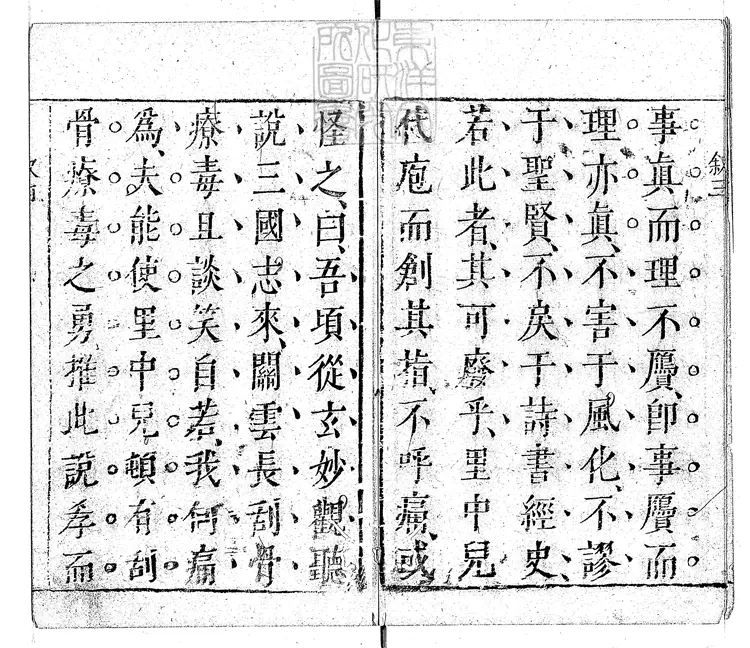 敍三
事真而理不贋即事贋而
理亦真不害于風化不謬
于聖賢不戾于詩書經史
若此者其可廢乎里中兒
代庖而創其指不呼痛或
怪之曰吾頃從玄妙觀聽
說三國志來關雲長刮骨
療毒且談笑自若我何痛
為夫能使里中兒頓有刮
骨療毒之勇推此說孝而